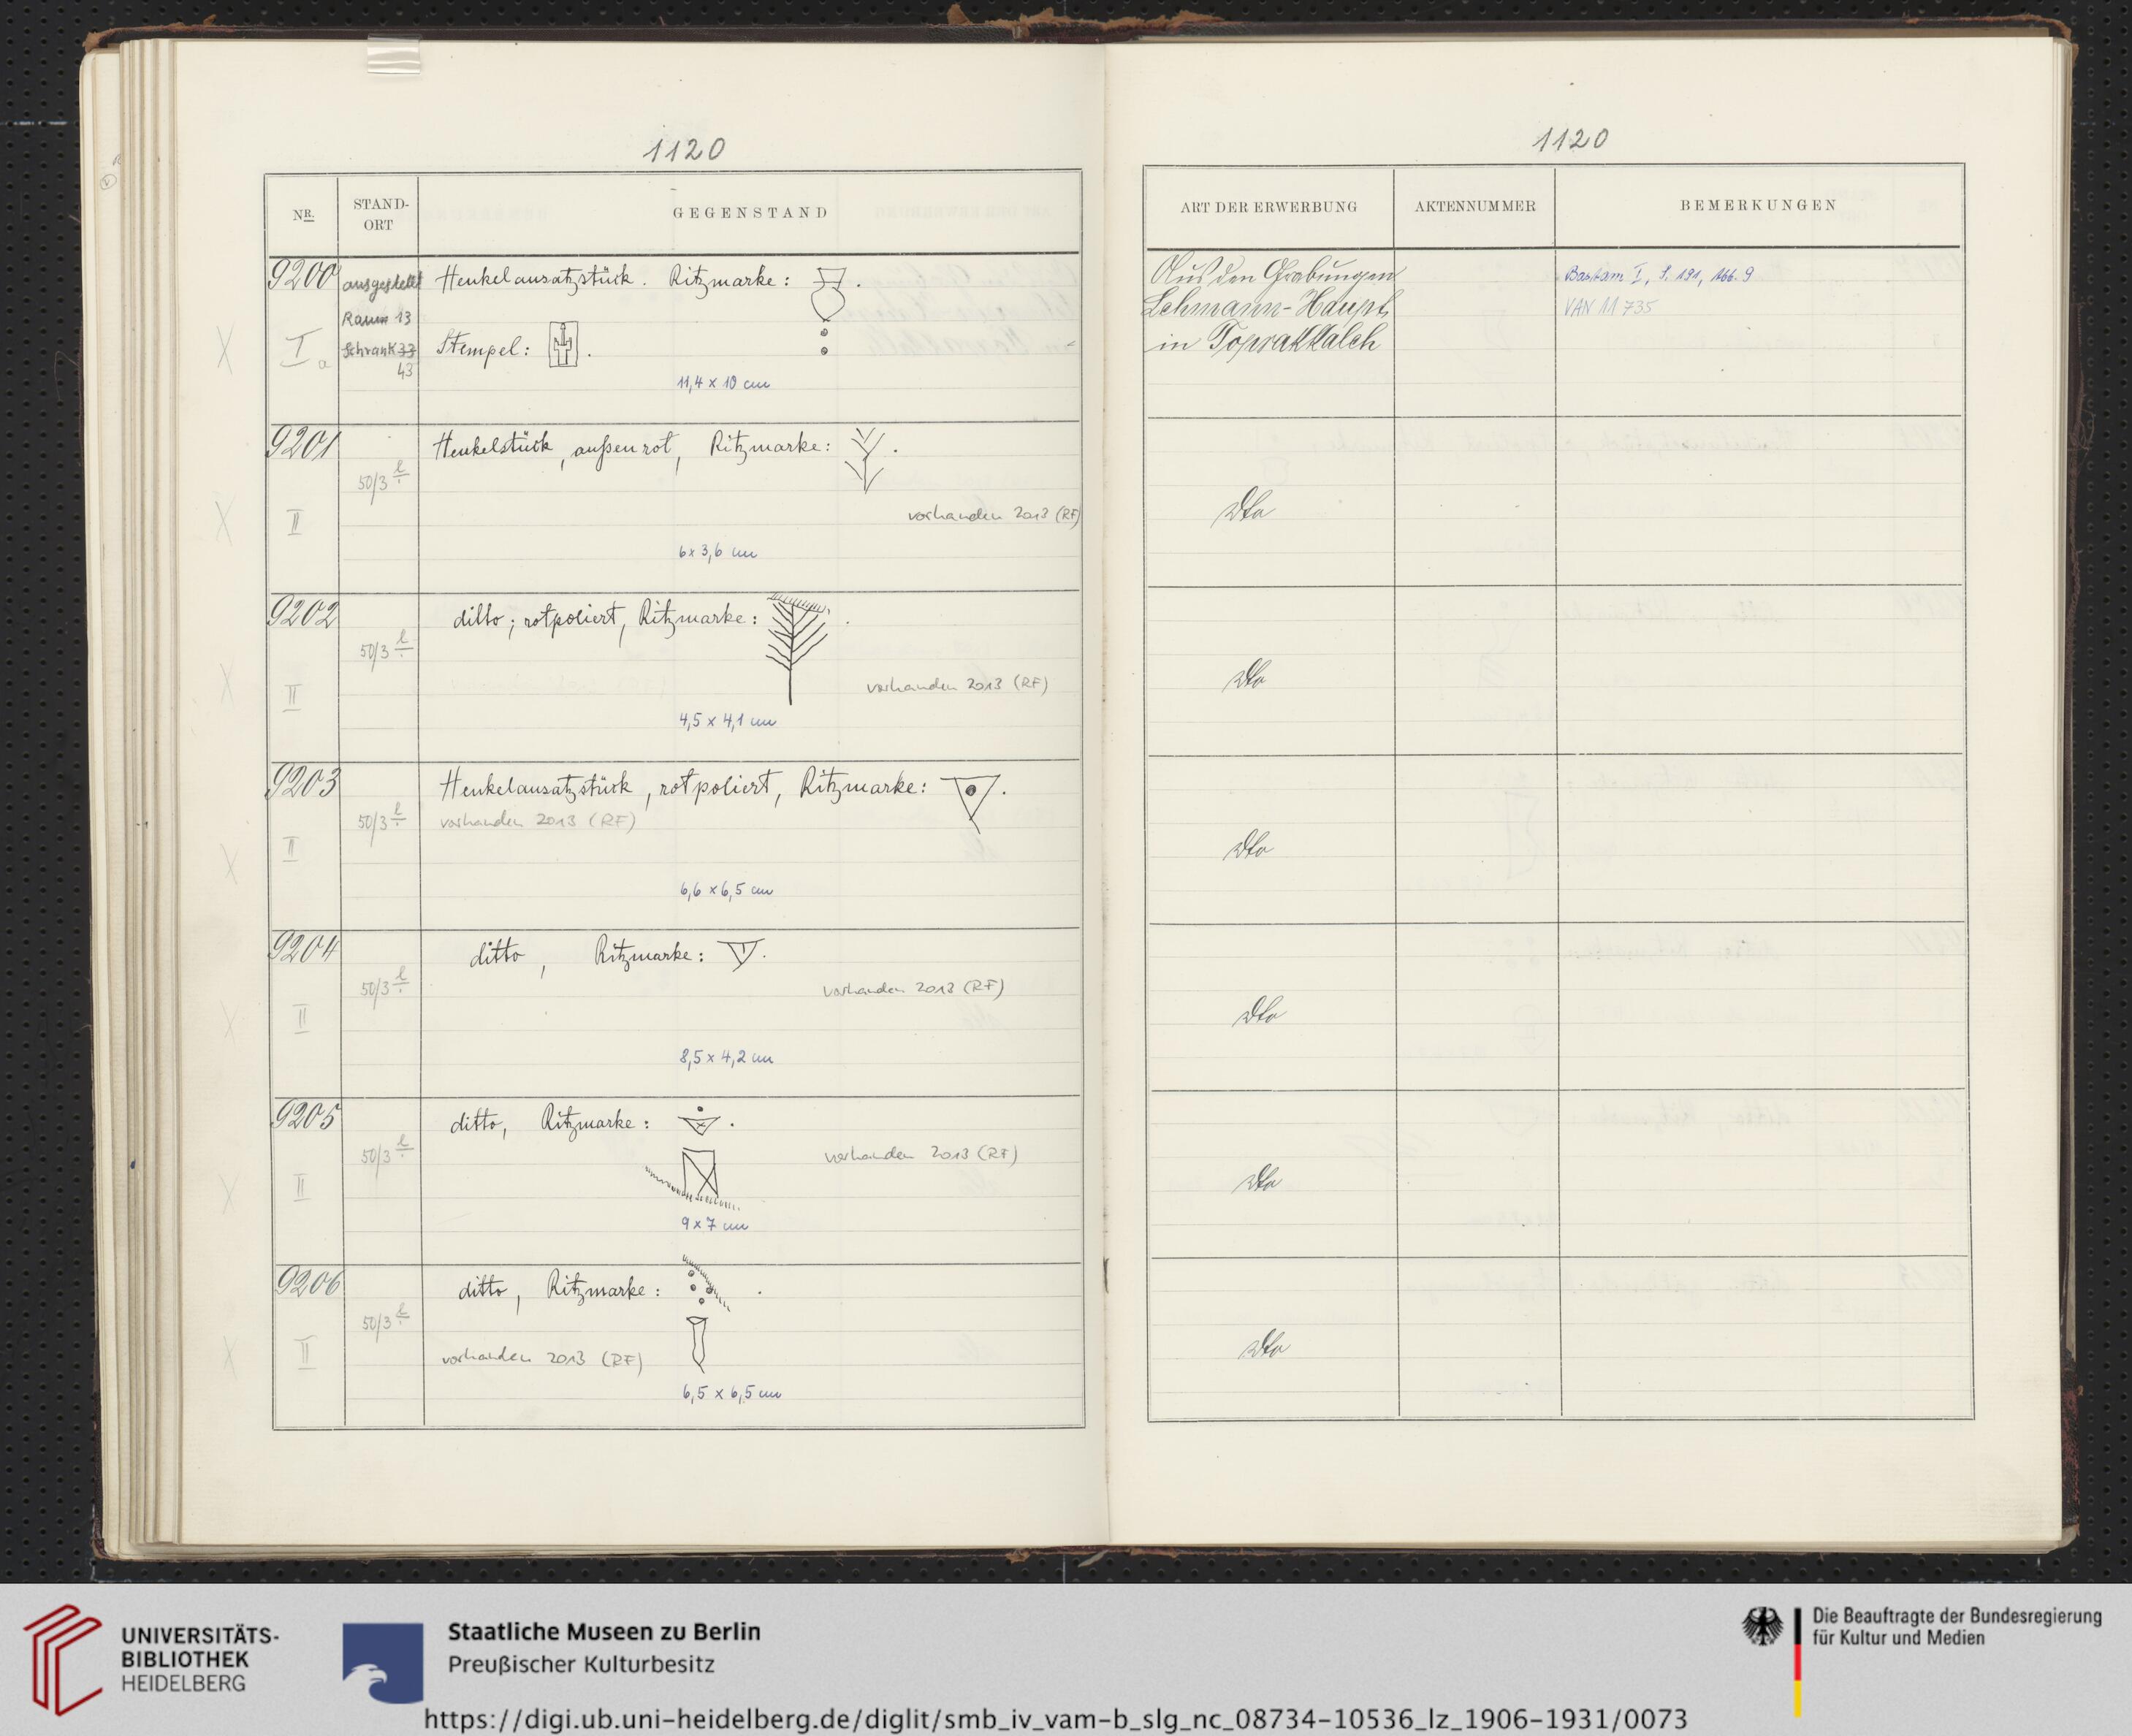 1120
NR.
STAND-
ORT
GEGENSTAND
9200
ausgestellt
Raum 13
Schrank 33
43
I a
Henkelansatzstück. Ritzmarke: .
Stempel: .
11,4 x 10 cm
9201
50/3
II
Henkelstück, außen rot, Ritzmarke: .
vorhanden 2013 (RF)
6 x 3,6 cm
9202
50/3
II
ditto; rotpoliert, Ritzmarke: .
vorhanden 2013 (RF)
4,5 x 4,1 cm
9203
50/3
II
Henkelansatzstück, rotpoliert, Ritzmarke: .
vorhanden 2013 (RF)
6,6 x 6,5 cm
9204
50/3
II
ditto, Ritzmarke: .
vorhanden 2013 (RF)
8,5 x 4,2 cm
9205
50/3
II
ditto, Ritzmarke: .
vorhanden 2013 (RF)
9 x 7 cm
9206
50/3
II
ditto, Ritzmarke: .
vorhanden 2013 (RF)
6,5 x 6,5 cm
1120
ART DER ERWERBUNG
AKTENNUMMER
BEMERKUNGEN
Aus den Grabungen
Lehmann-Haupt
in Toprakkaleh
Bastam I, S. 191, Abb. 9
VAN 11 735
dto
dto
dto
dto
dto
dto
UNIVERSITÄTS-
BIBLIOTHEK
HEIDELBERG
Staatliche Museen zu Berlin
Preußischer Kulturbesitz
Die Beauftragte der Bundesregierung
für Kultur und Medien
https://digi.ub.uni-heidelberg.de/diglit/smb_iv_vam-b_slg_nc_08734-10536_lz_1906-1931/0073